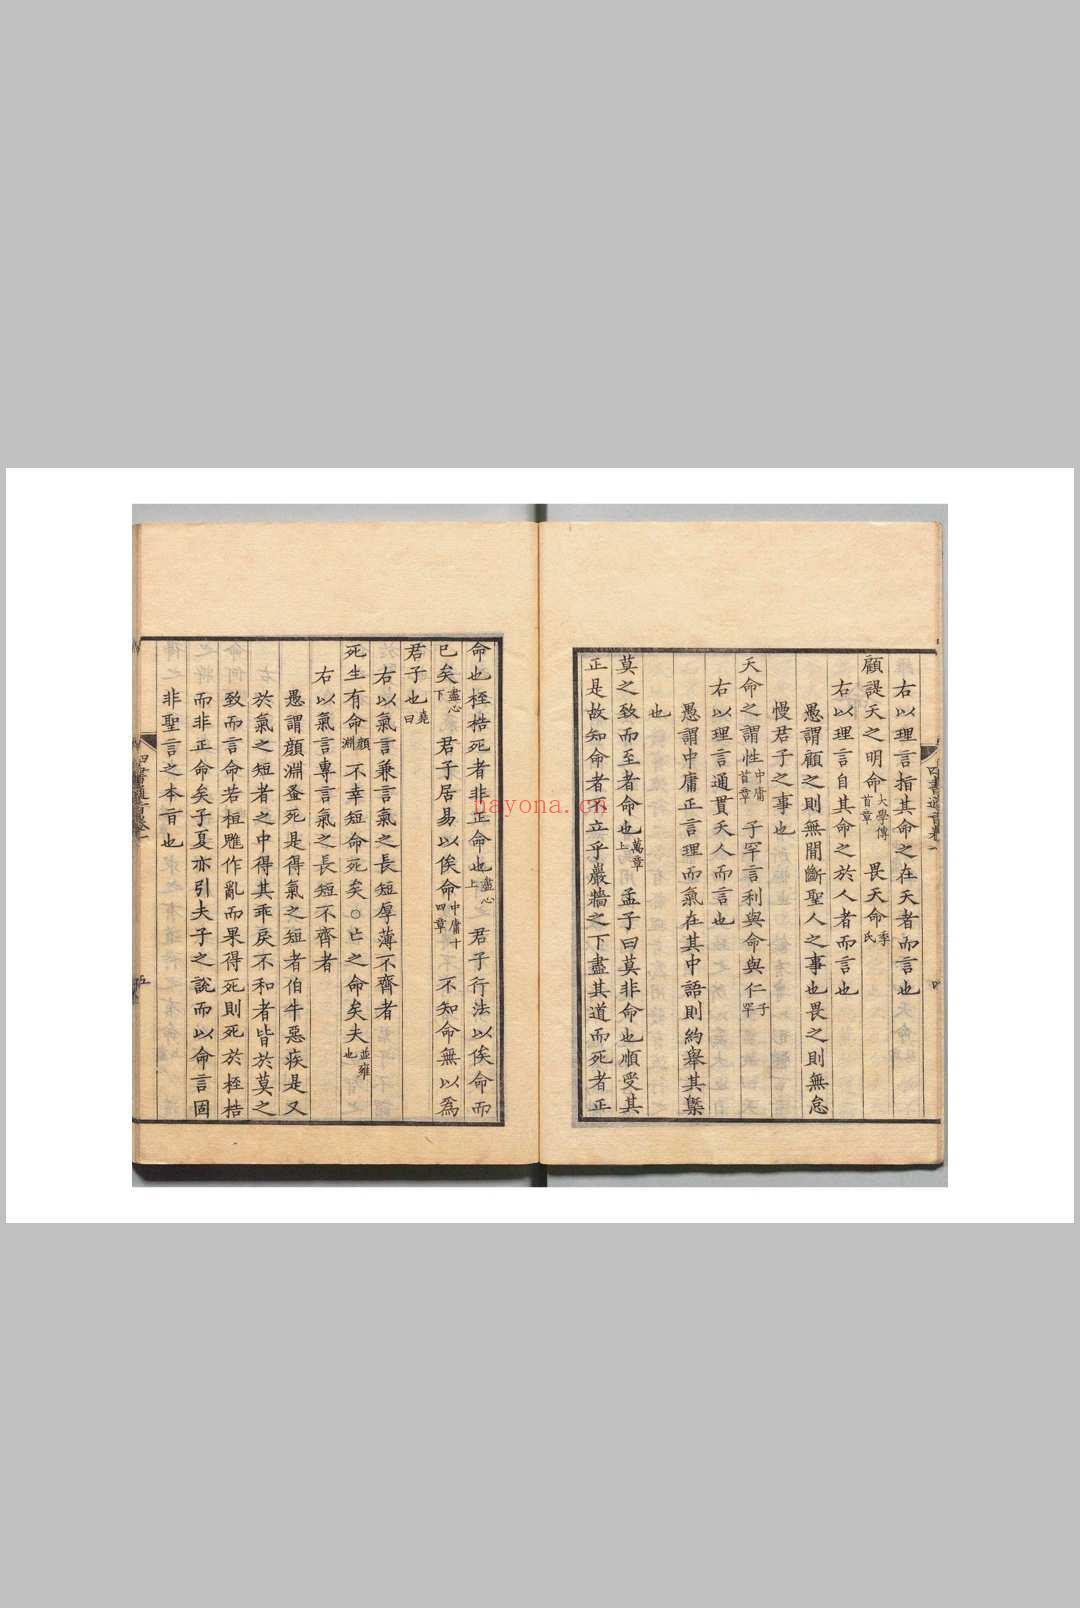 右以理言指其命之在天者而言也
顧諟天之明命大學傳首章 畏天命季氏
右以理言自其命之於人者而言也
愚謂顧之則無間斷聖人之事也畏之則無怠
慢君子之事也
天命之謂性中庸首章 子罕言利與命與仁子罕
右以理言通貫天人而言也
愚謂中庸正言理而氣在其中語則約舉其槩
也
莫之致而至者命也萬章上 孟子曰莫非命也順受其
正是故知命者不立乎巖牆之下盡其道而死者正
命也桎梏死者非正命也盡心上 君子行法以俟命而
已矣盡心下 君子居易以俟命中庸十四章 不知命無以為
君子也堯曰
右以氣言兼言氣之長短厚薄不齊者
死生有命顏淵 不幸短命死矣○亡之命矣夫並雍也
右以氣言專言氣之長短不齊者
愚謂顏淵蚤死是得氣之短者伯牛惡疾是又
於氣之短者之中得其乖戾不和者皆於莫之
致而言命若桓魋作亂而果得死則死於桎梏
而非正命矣子夏亦引夫子之說而以命言固
非聖言之本旨也
四書通旨卷一
五
nayona.cn